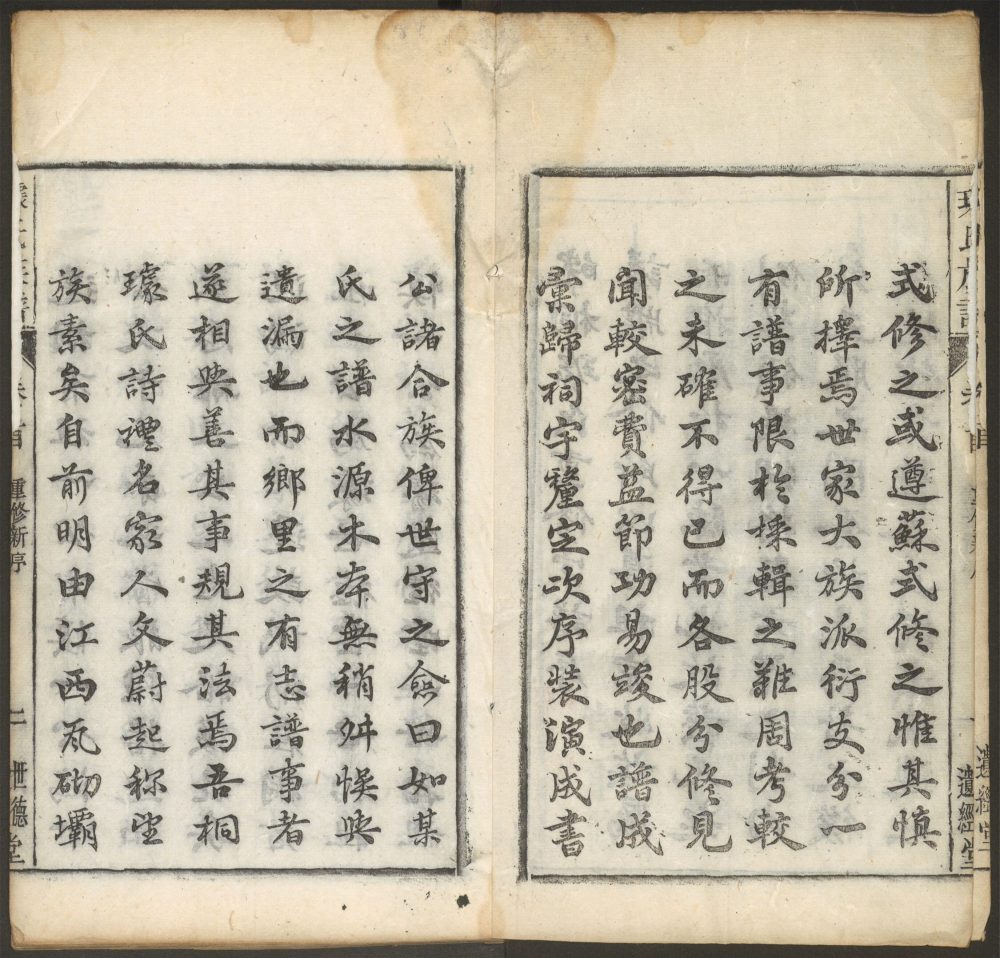 式修之或遵蘇式修之惟其慎
所擇焉世家大族派衍支分一
有譜事限於採輯之難周考較
之未確不得已而各股分修見
聞較密費益節功易竣也譜成
彙歸祠宇釐定次序裝演成書
遺經堂
公諸合族俾世守之僉曰如某
氏之譜水源木本無稍舛悞與
遺漏也而鄉里之有志譜事者
遂相與善其事規其法焉吾桐
璩氏詩禮名家人文蔚起称望
族素矣自前明由江西瓦砌壩
重修新序
二
世德堂